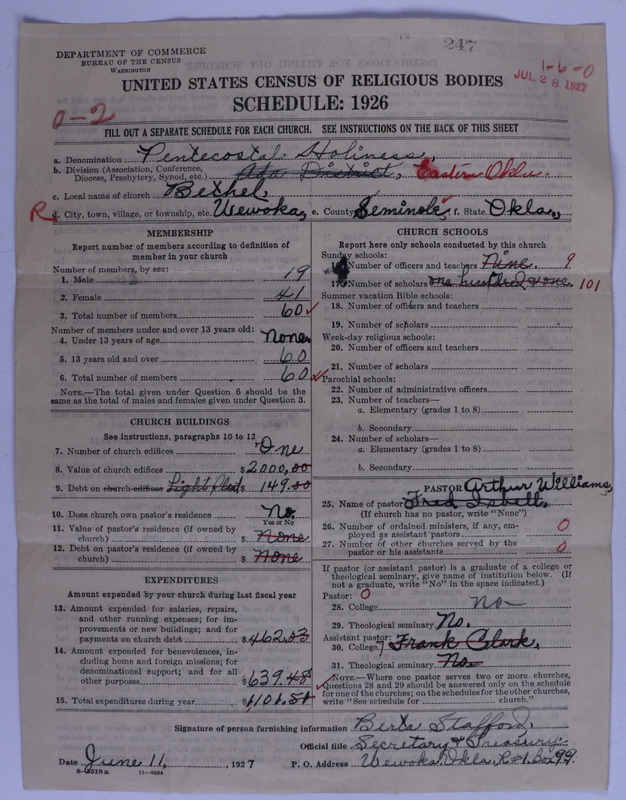 247
DEPARTMENT OF COMMERCE
BUREAU OF THE CENSUS
WASHINGTON
1-6-0
JUL 28 1927
UNITED STATES CENSUS OF RELIGIOUS BODIES
SCHEDULE: 1926
0-2
FILL OUT A SEPARATE SCHEDULE FOR EACH CHURCH. SEE INSTRUCTIONS ON THE BACK OF THIS SHEET
a. Denomination Pentecostal Holiness,
b. Division (Association, Conference, Diocese, Presbytery, Synod, etc.) Ada District, Eastern Okla.
c. Local name of church Bethel,
R d. City, town, village, or township, etc. Wewoka, e. County Seminole, f. State Okla,
MEMBERSHIP
Report number of members according to definition of
member in your church
Number of members, by sex:
1. Male 19
2. Female 41
3. Total number of members 60
Number of members under and over 13 years old:
4. Under 13 years of age None
5. 13 years old and over 60
6. Total number of members 60
NOTE.—The total given under Question 6 should be
same as the total of males and females given under Question 3.
CHURCH BUILDINGS
See instructions, paragraphs 10 to 12
7. Number of church edifices One
8. Value of church edifices $2000,00
9. Debt on church edifices Light Plant $ 149.00
10. Does church own pastor's residence No.
Yes or No
11. Value of pastor's residence (if owned by
church) $ None
12. Debt on pastor's residence (if owned by
church) $ None
EXPENDITURES
Amount expended by your church during last fiscal year
13. Amount expended for salaries, repairs,
and other running expenses; for im-
provements or new buildings; and for
payments on church debt $462.03
14. Amount expended for benevolences, in-
cluding home and foreign missions; for
denominational support; and for all
other purposes $639.48
15. Total expenditures during year $1101.51
CHURCH SCHOOLS
Report here only schools conducted by this church
Sunday schools:
Number of officers and teachers Nine. 9
17. Number of scholars one hundred & one. 101
Summer vacation Bible schools:
18. Number of officers and teachers
19. Number of scholars
Week-day religious schools:
20. Number of officers and teachers
21. Number of scholars
Parochial schools:
22. Number of administrative officers
23. Number of teachers—
a. Elementary (grades 1 to 8)
b. Secondary
24. Number of scholars—
a. Elementary (grades 1 to 8)
b. Secondary
PASTOR Arthur Williams,
25. Name of pastor Fred Isbell,
(If church has no pastor, write "None")
26. Number of ordained ministers, if any, em-
ployed as assistant pastors 0
27. Number of other churches served by the
pastor or his assistants 0
If pastor (or assistant pastor) is a graduate of a college or
theological seminary, give name of institution below. (If
not a graduate, write "No" in the space indicated.)
Pastor: 0
28. College no
29. Theological seminary No.
Assistant pastor:
30. College Frank Clark,
31. Theological seminary No.
NOTE.—Where one pastor serves two or more churches,
Questions 28 and 29 should be answered only on the schedule
for one of the churches; on the schedules for the other churches,
write "See schedule for church."
Signature of person furnishing information Berta Stafford,
Official title Secretary & Treasury.
Date June 11, 1927 P. O. Address Wewoka, Okla, R#1, Box 99.
8-3513a 11-9054